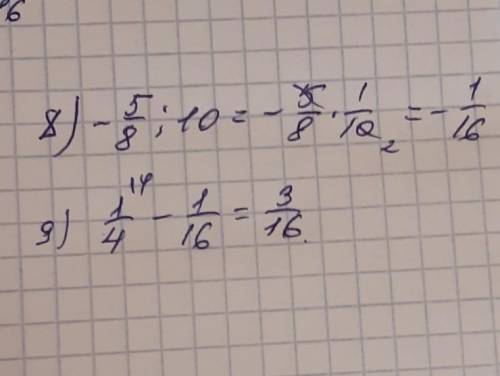 16
8) - 5/8 : 10 = - 5/8 · 1/10 2 = - 1/16
9) 1/4 14 - 1/16 = 3/16.